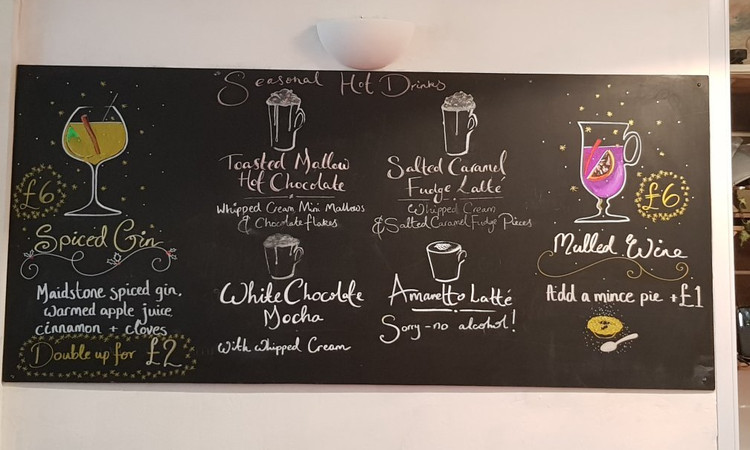 Seasonal Hot Drinks
£6
Spiced Gin
Maidstone spiced gin,
warmed apple juice
cinnamon + cloves
Double up for £2
Toasted Mallow
Hot Chocolate
Whipped Cream Mini Mallows
& Chocolate flakes
White Chocolate
Mocha
with whipped Cream
Salted Caramel
Fudge Latté
Whipped Cream
& Salted Caramel Fudge Pieces
Amaretto Latté
Sorry - no alcohol!
£6
Mulled Wine
Add a mince pie +£1